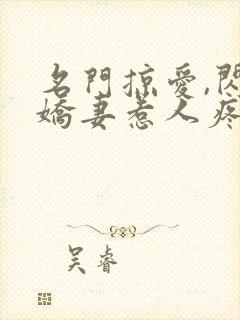 名門掠愛,閃
嬌妻惹人疼
吴睿